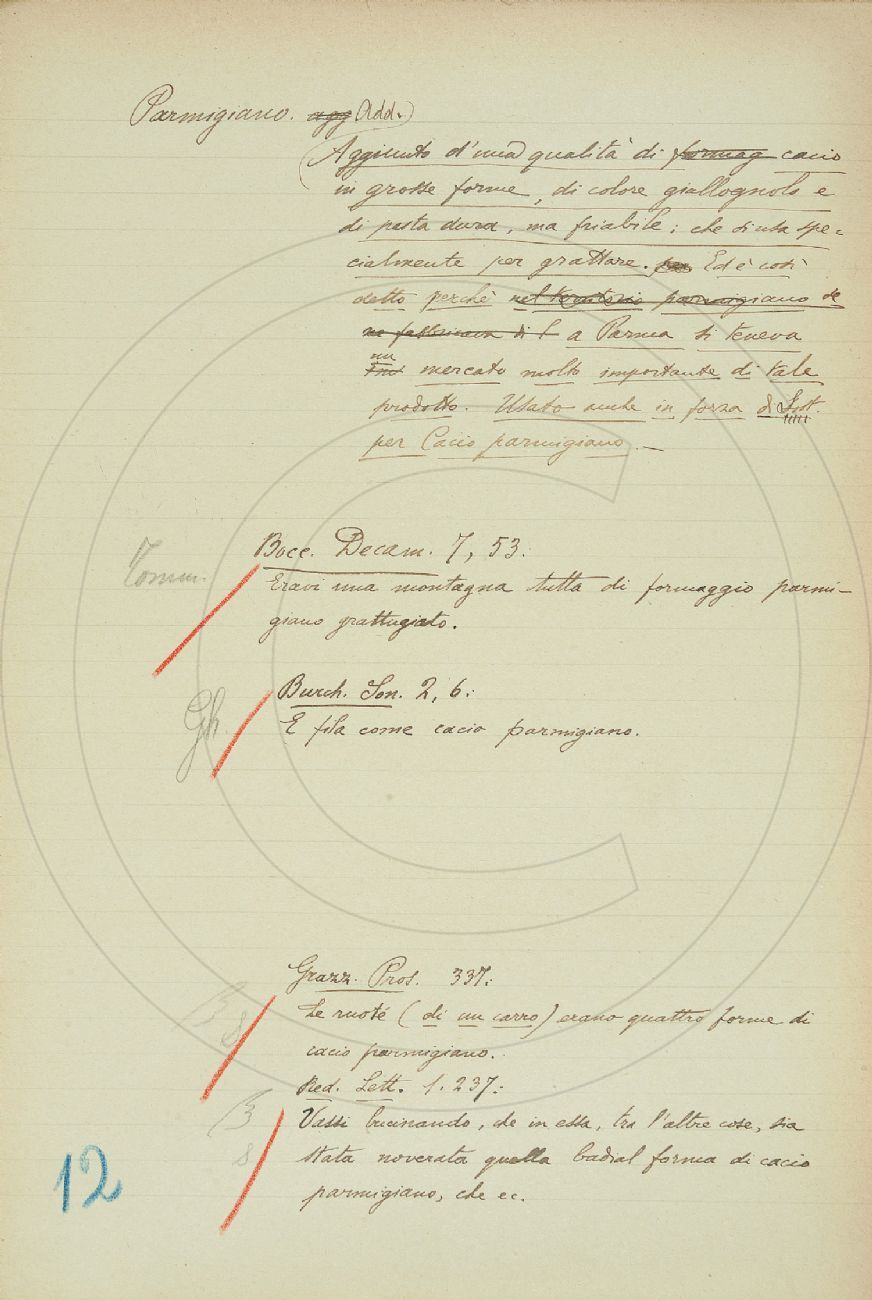 Parmigiano. agg Add.
Aggiunto d'una qualità di formag cacio
in grosse forme, di colore giallognolo e
di pasta dura, ma friabile; che si usa spe-
cialmente per grattare. Ed è così
detto perchè nel territorio parmigiano se
ne fabbricava di l a Parma si teneva
un
mercato molto importante di tale
prodotto. Usato anche in forza di Sost.
per Cacio parmigiano. —
Bocc. Decam. 7, 53:
Tomm.
Eravi una montagna tutta di formaggio parmi-
giano grattugiato.
Burch. Son. 2, 6:
Gh.
E fila come cacio parmigiano.
Grazz. Pros. 337:
Le ruote (di un carro) erano quattro forme di
cacio parmigiano.
Red. Lett. 1. 237:
Vassi bucinando, che in essa, tra l'altre cose, sia
stata noverata quella badial forma di cacio
parmigiano, che ec.
12